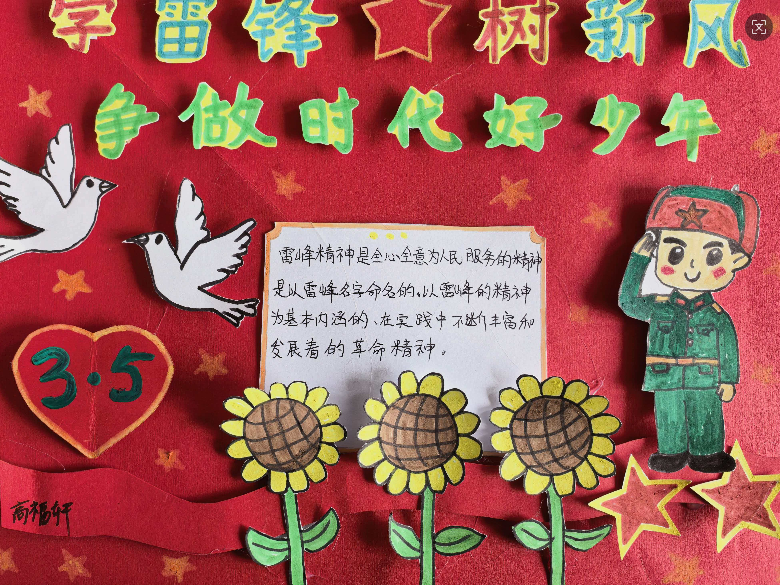 学雷锋 树新风
争做时代好少年
雷峰精神是全心全意为人民服务的精神
是以雷峰名字命名的。以雷峰的精神
为基本内涵的、在实践中不断丰富和
发展着的革命精神。
3·5
高福轩